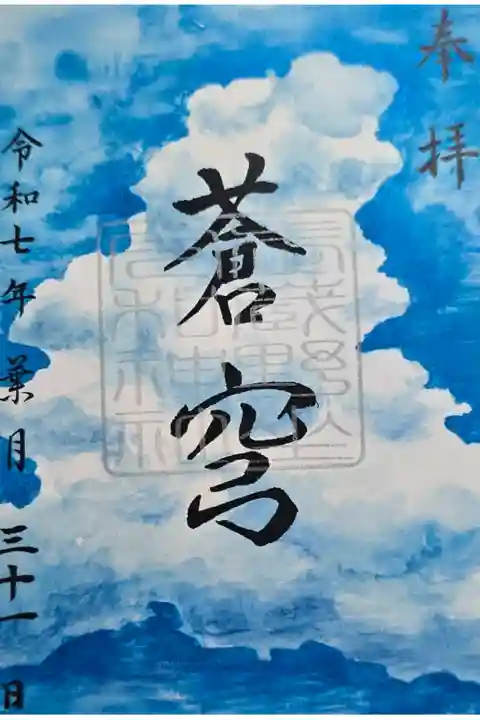 奉拝
蒼穹
令和七年 葉月 三十一日